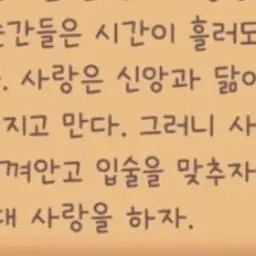 순간들은 시간이 흘러도
. 사랑은 신앙과 닮아
지고 만다. 그러니 사
껴안고 입술을 맞추자
대 사랑을 하자.